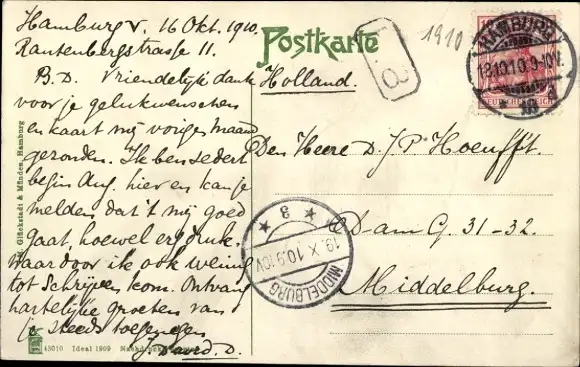 Hamburg, 16 Okt. 1910.
Rautenbergstrasse 11.
B.D. Vriendelijk dank
voor je gelukwenschen
en kaart mij vorige maand
gezonden. Ik ben sedert
begin Aug. hier en kan je
melden dat 't mij goed
gaat, hoewel erg druk.
Waardoor ik ook weinig
tot schrijven kom. Ontvang
hartelijke groeten van
je steeds toegenegen
Postkarte
Holland.
1910
8
HAMBURG
18.10.10.9-10V.
DEUTSCHES REICH
Den Heere D. J. P. Hoeufft.
Dam G. 31-32.
Middelburg.
MIDDELBURG
19.X.10.9-10V.
3
Glückstadt & Münden, Hamburg
43010 Ideal 1909